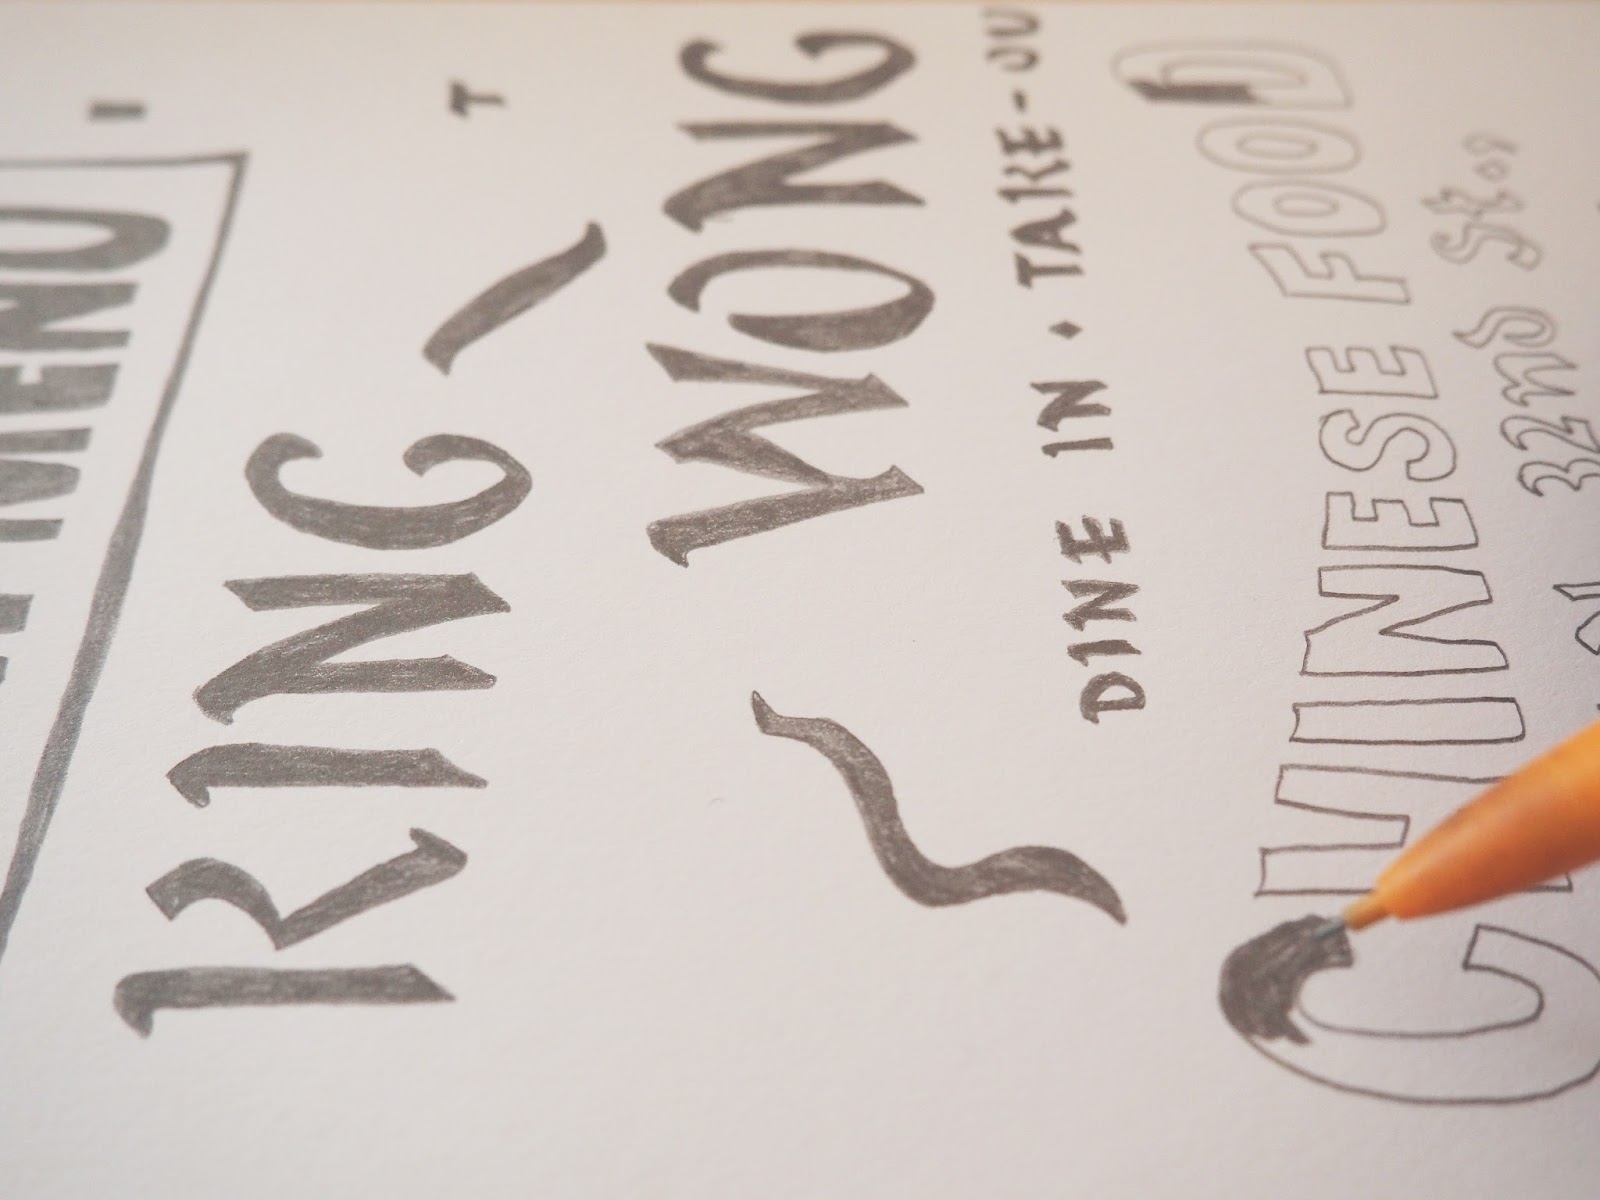 MENU
KING T
WONG
DINE IN · TAKE-OU
CHINESE FOOD
32nd St.